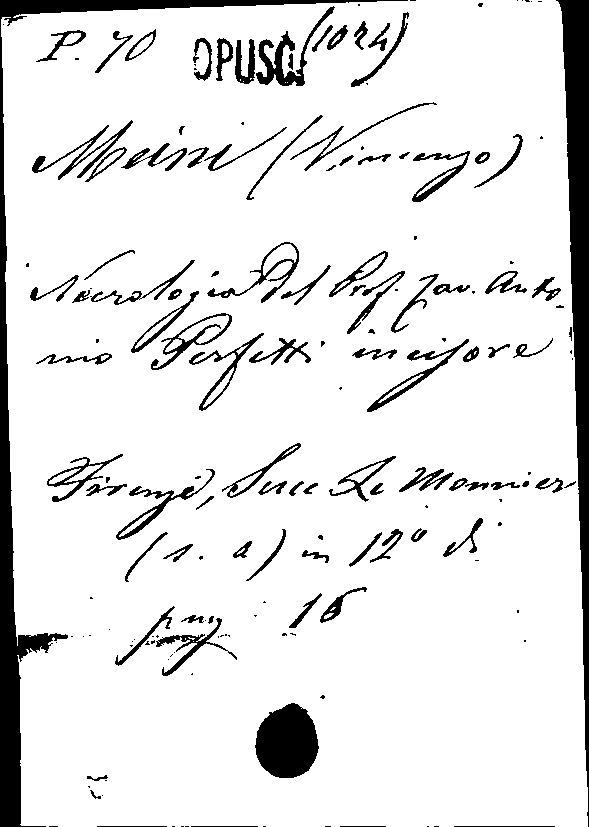 P. 70 OPUSC. (1024)
Meini (Vincenzo)
Necrologia del Prof. Cav. Anto-
nio Perfetti incisore
Firenze, Succ Le Monnier
(s. a) in 12° di
pag 16